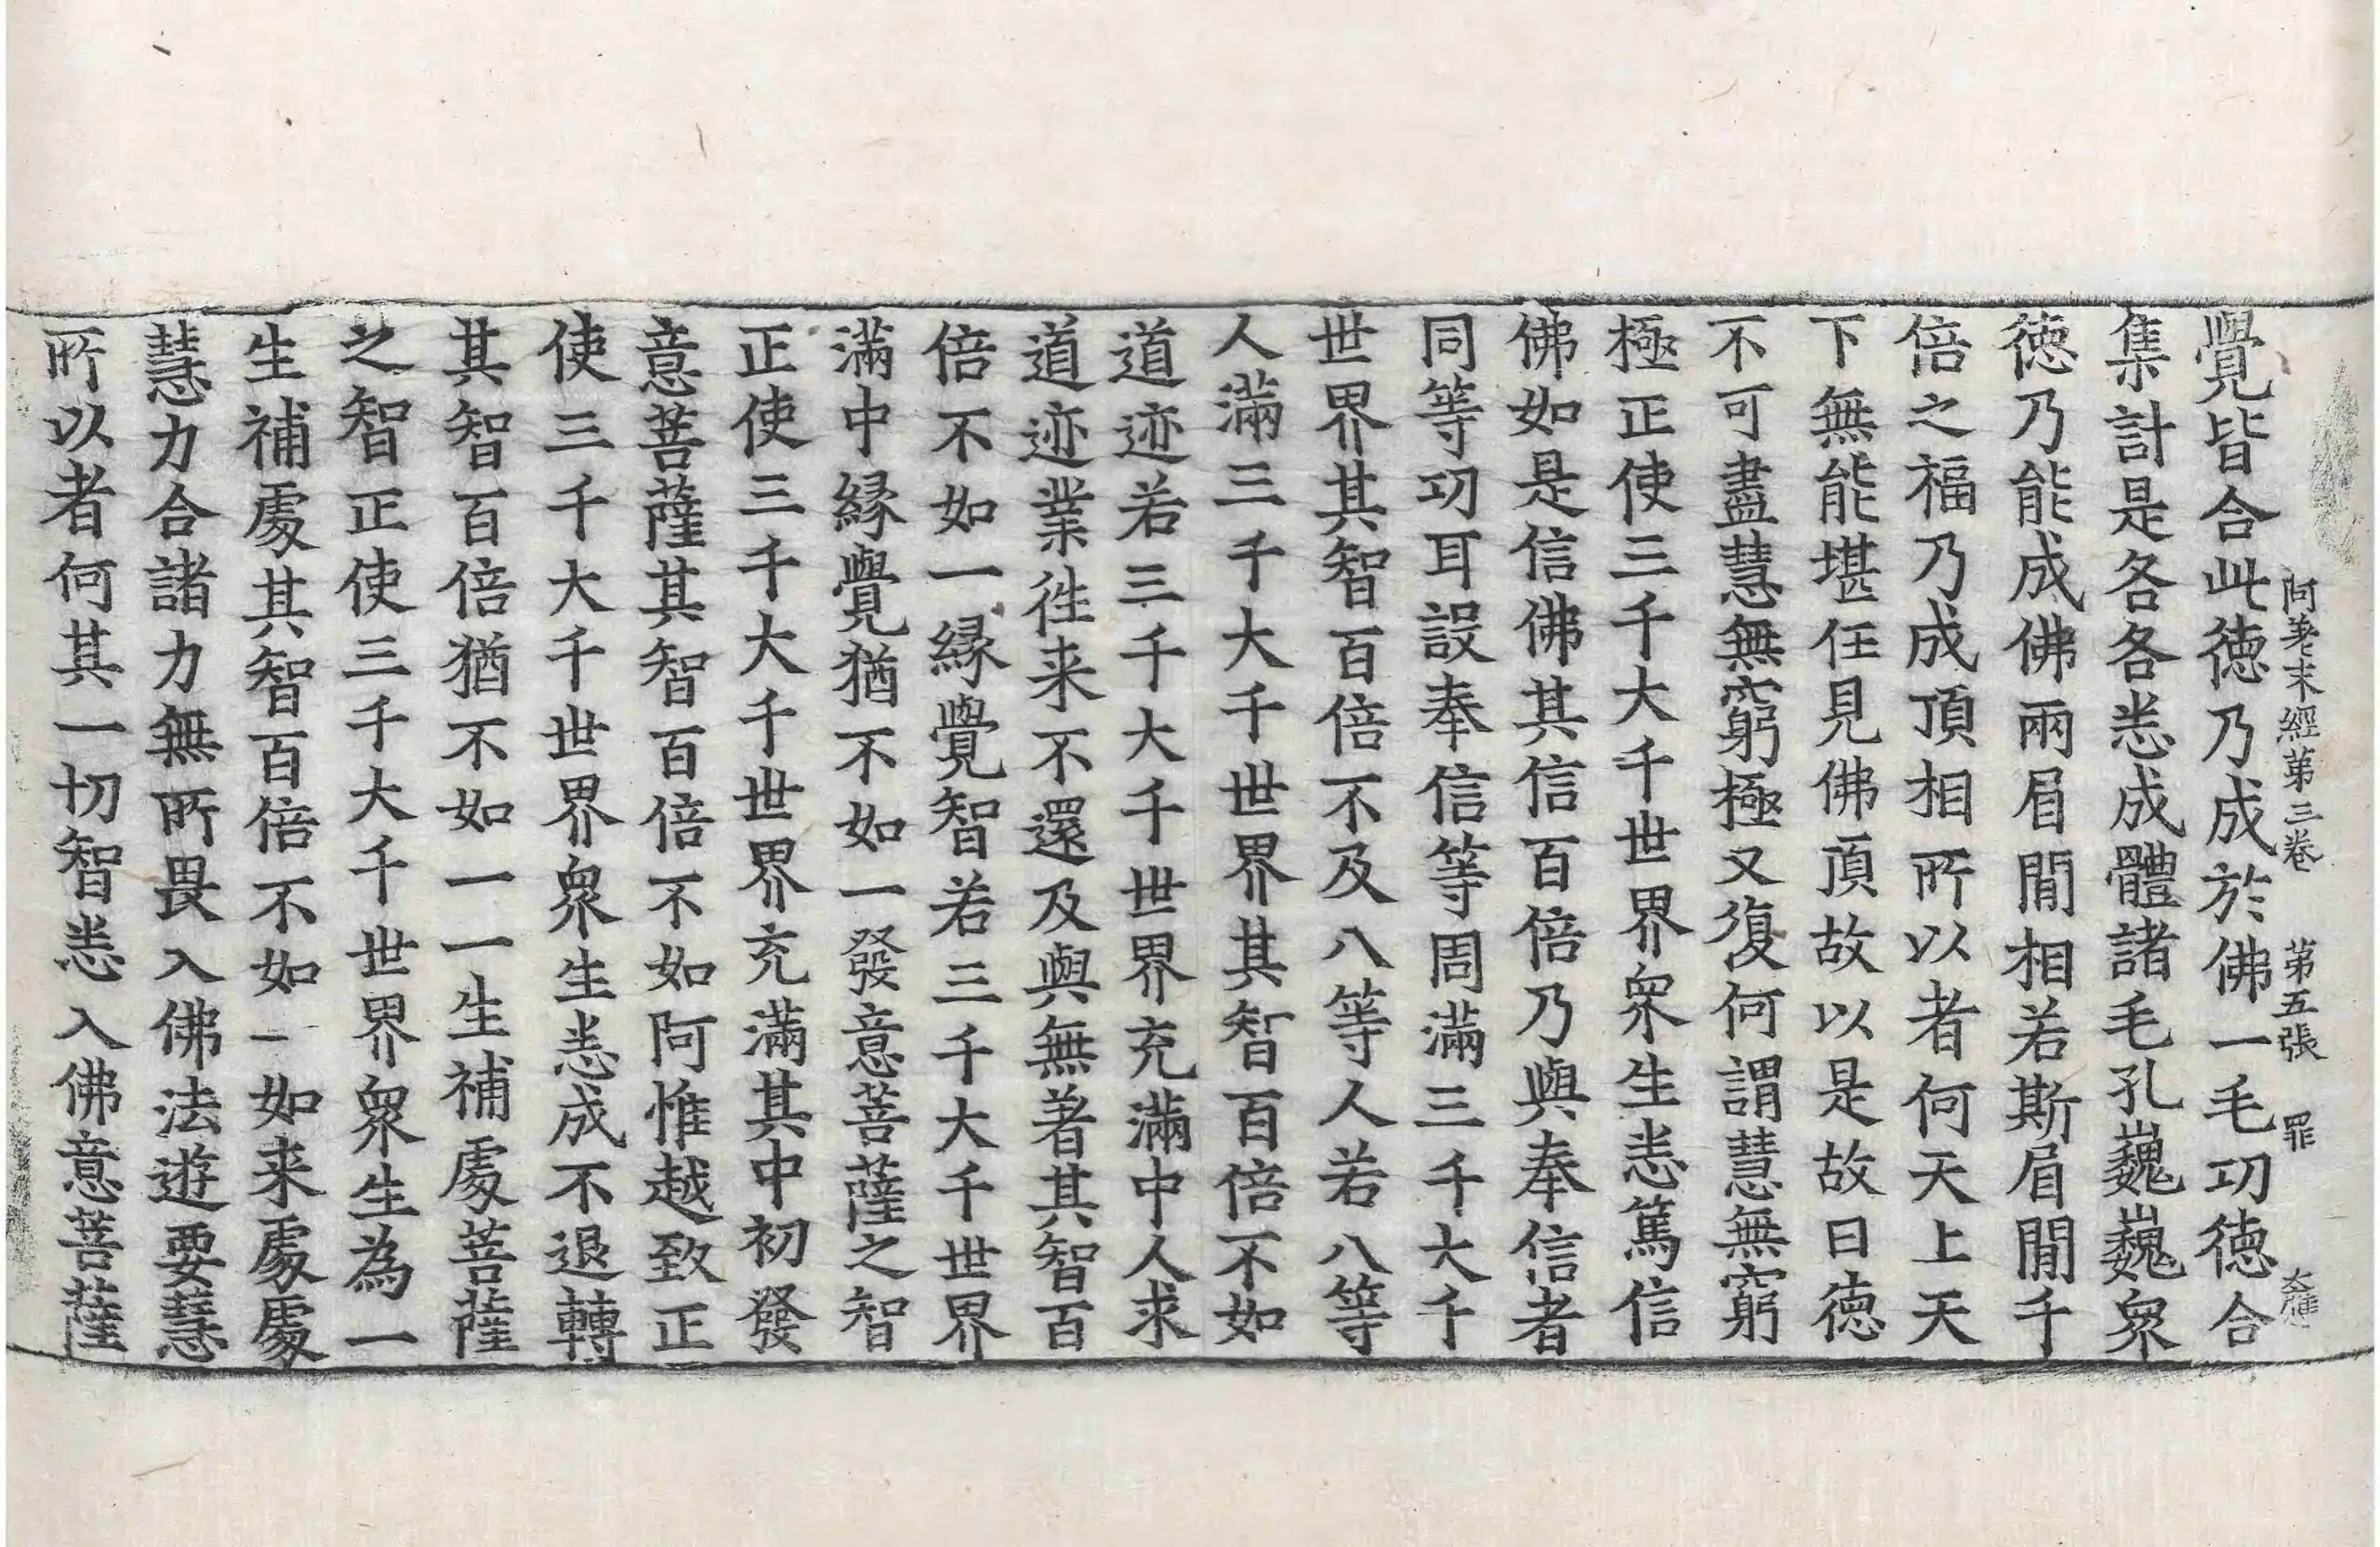 阿差末經第三卷 第五張 罪
覺皆合此德乃成於佛一毛功德合
集計是各各悉成體諸毛孔巍巍衆
德乃能成佛兩眉閒相若斯眉閒千
倍之福乃成頂相所以者何天上天
下無能堪任見佛頂故以是故曰德
不可盡慧無窮極又復何謂慧無窮
極正使三千大千世界衆生悉篤信
佛如是信佛其信百倍乃與奉信者
同等功耳設奉信等周滿三千大千
世界其智百倍不及八等人若八等
人滿三千大千世界其智百倍不如
道迹若三千大千世界充滿中人求
道迹業徃来不還及與無著其智百
倍不如一緣覺智若三千大千世界
滿中緣覺猶不如一發意菩薩之智
正使三千大千世界充滿其中初發
意菩薩其智百倍不如阿惟越致正
使三千大千世界衆生悉成不退轉
其智百倍猶不如一一生補處菩薩
之智正使三千大千世界衆生為一
生補處其智百倍不如一如来處處
慧力合諸力無所畏入佛法遊要慧
所以者何其一切智悉入佛意菩薩